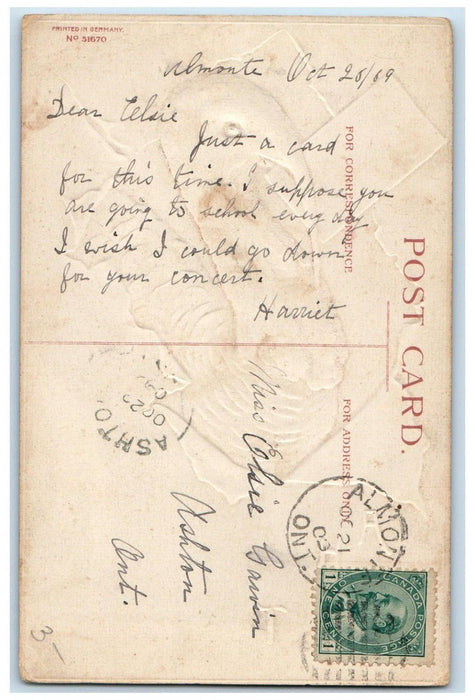 PRINTED IN GERMANY
No 51670
Almonte Oct 20/09
Dear Elsie
Just a card
for this time. I suppose you
are going to school every day
I wish I could go down
for your concert.
Harriet
FOR CORRESPONDENCE
POST CARD.
FOR ADDRESS ONLY
Miss Elsie
Ashton
Ont.
ASHTO
OC 22
ALMON
ONT.
OC 21
CANADA POSTAGE
ONE CENT
1
1
3-